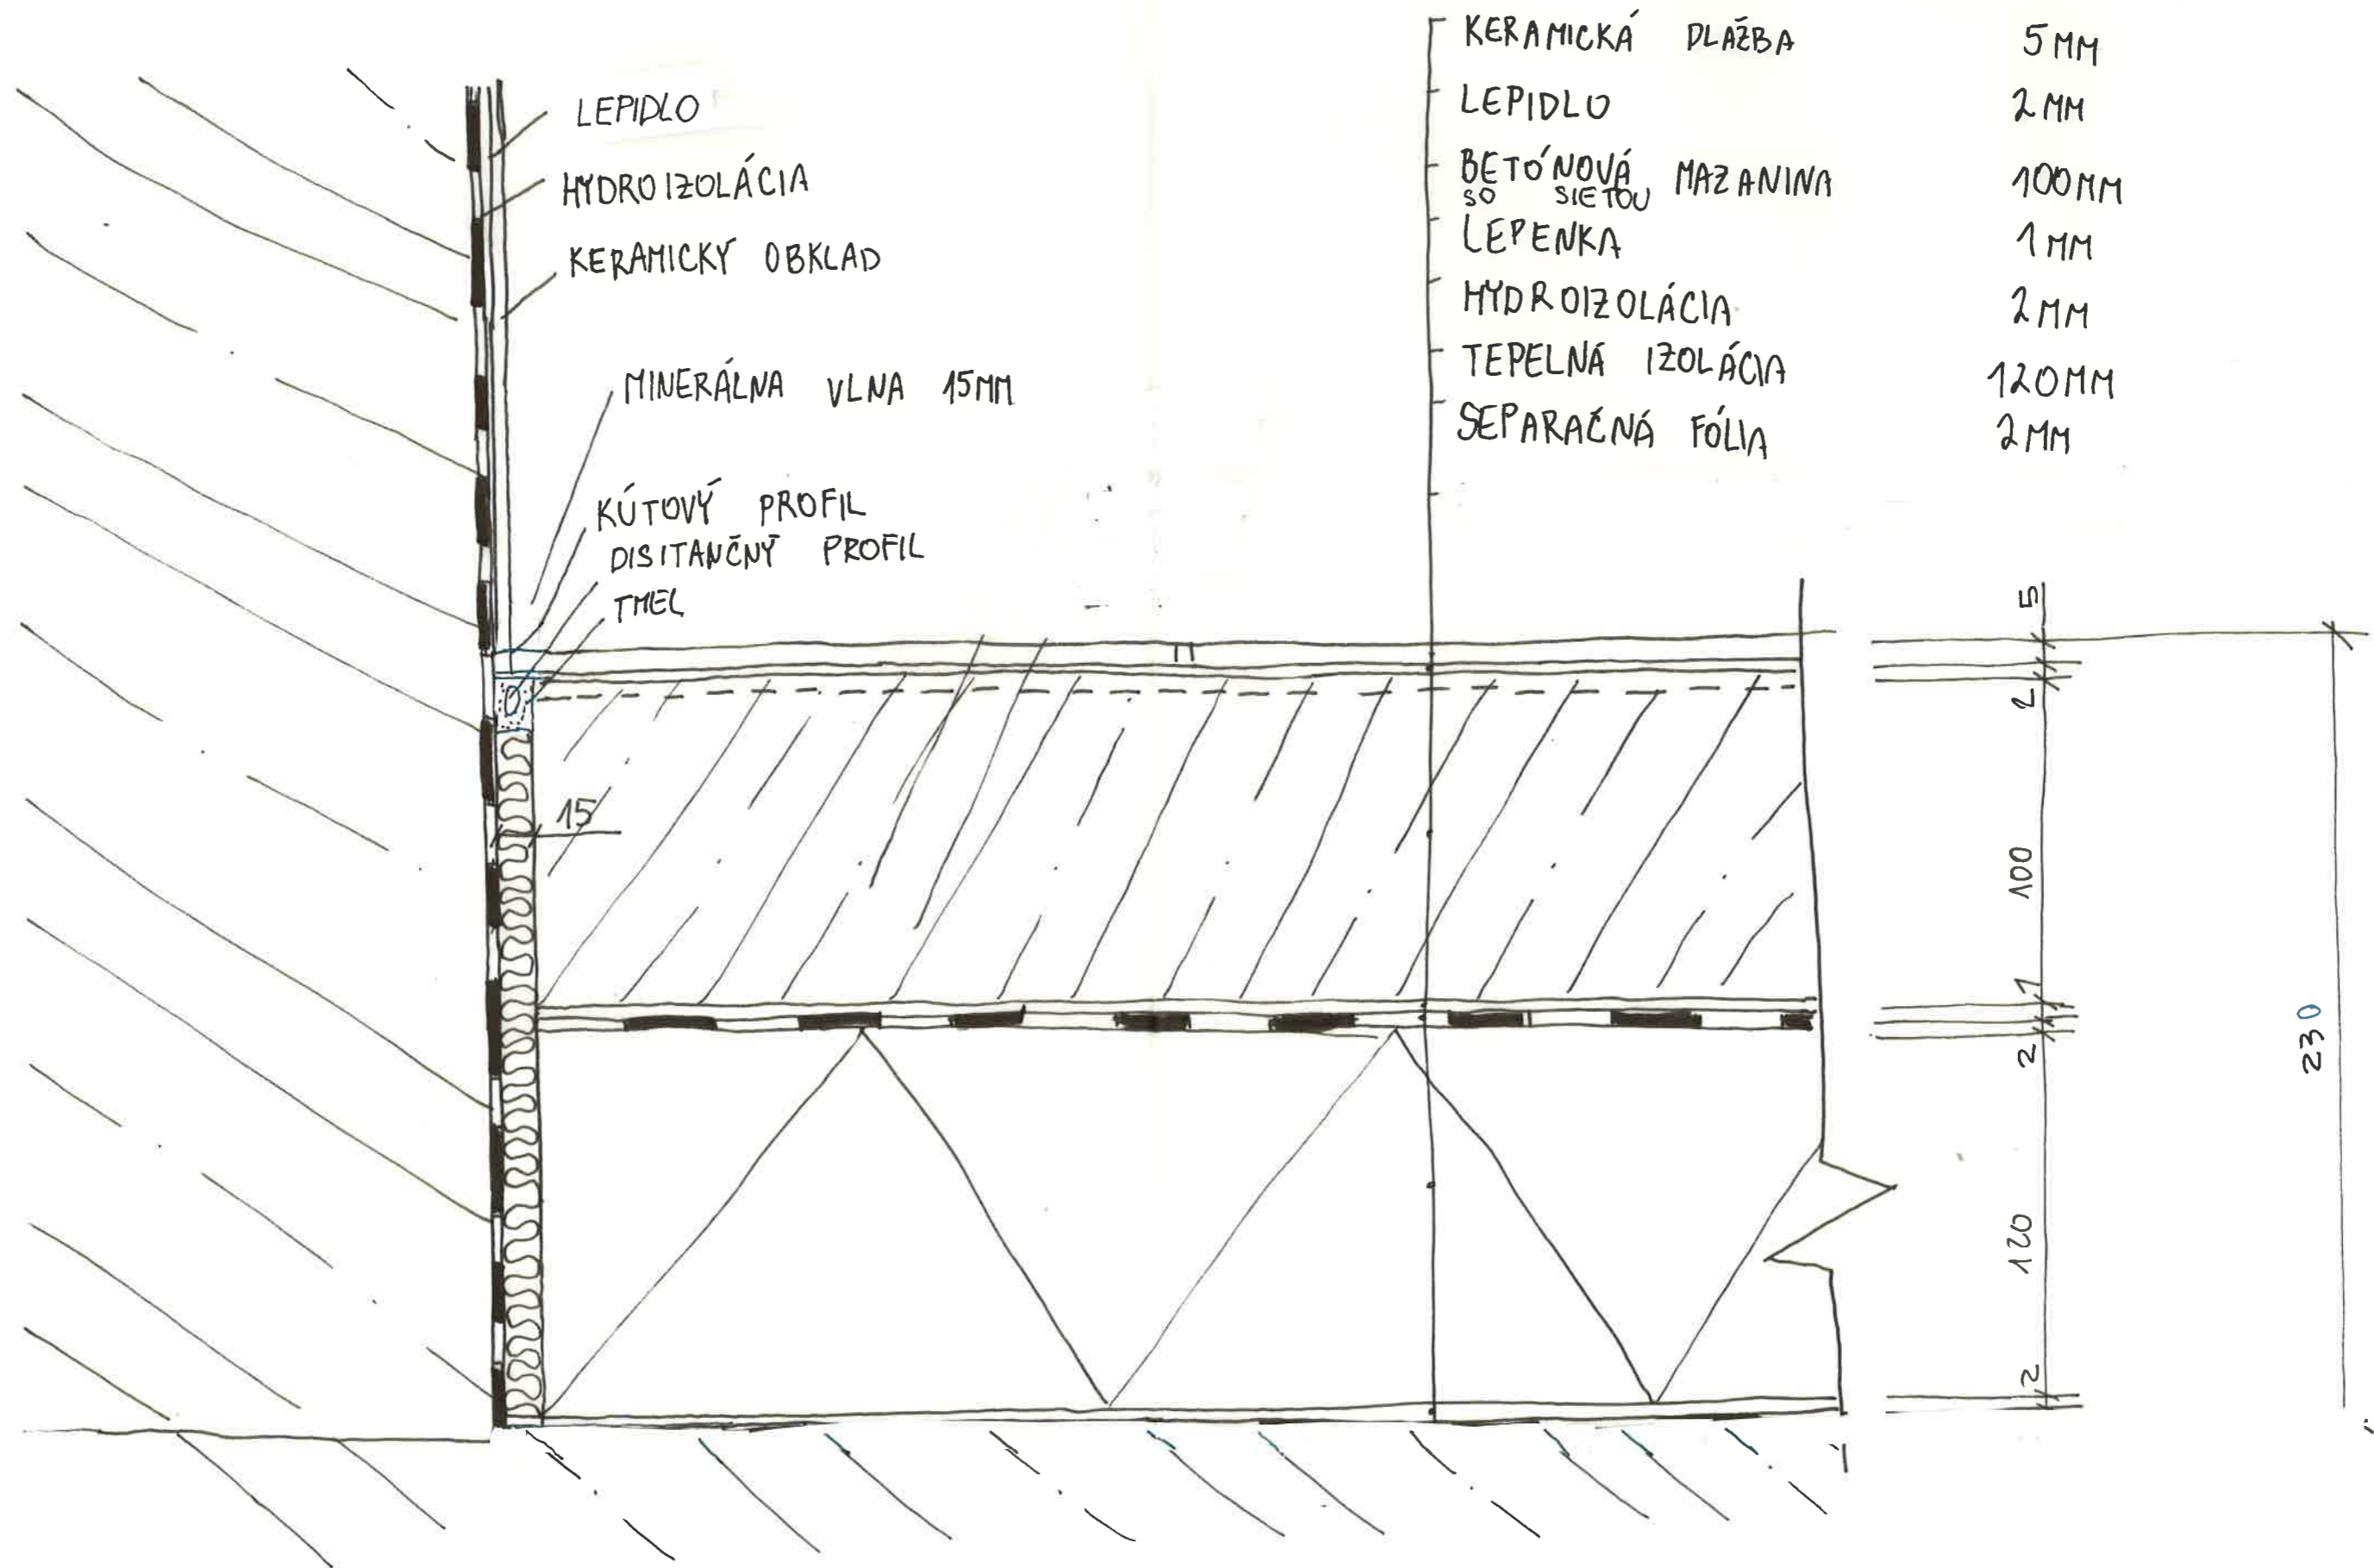 LEPIDLO
HYDROIZOLÁCIA
KERAMICKÝ OBKLAD
MINERÁLNA VLNA 15MM
KÚTOVÝ PROFIL
DISITANČNÝ PROFIL
TMEL
KERAMICKÁ DLAŽBA 5MM
LEPIDLO 2MM
BETÓNOVÁ MAZANINA 100MM
SO SIETOU
LEPENKA 1MM
HYDROIZOLÁCIA 2MM
TEPELNÁ IZOLÁCIA 120MM
SEPARAČNÁ FÓLIA 2MM
15
5
2
100
1
2
120
2
230